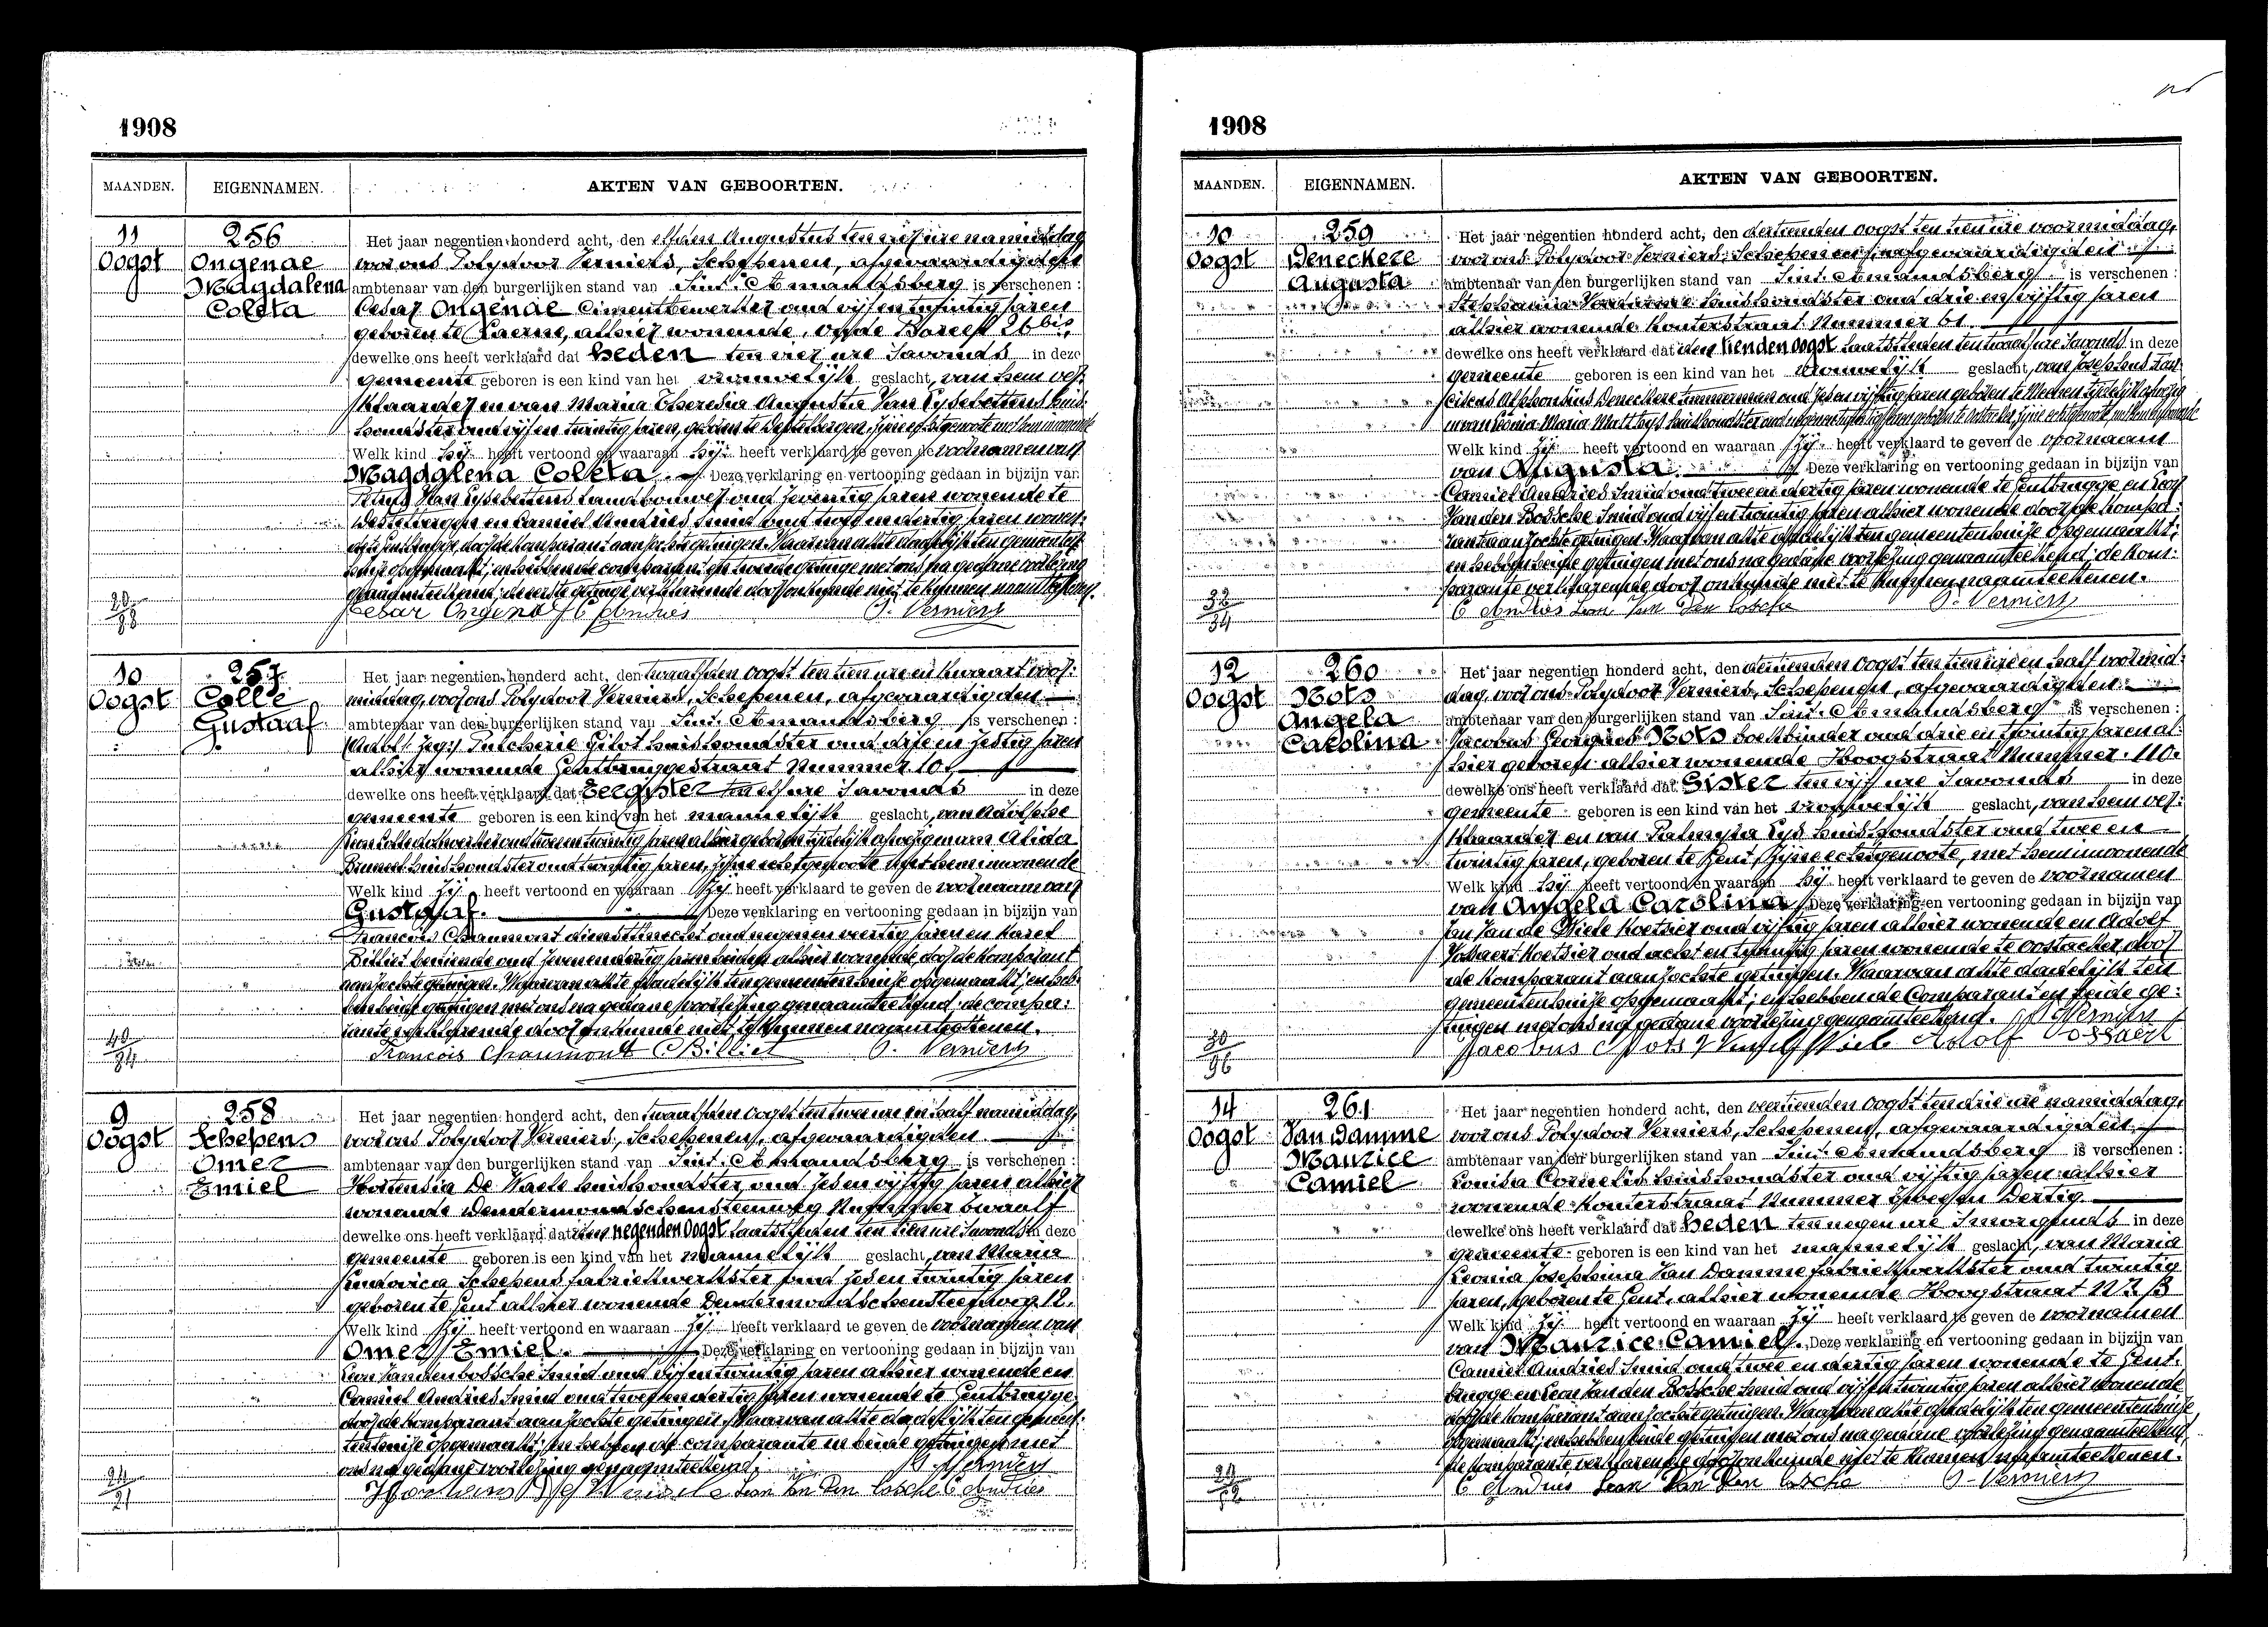 1908
MAANDEN. EIGENNAMEN. AKTEN VAN GEBOORTEN.
11
Oogst
256
Ongenae
Magdalena
Coleta
Het jaar negentien honderd acht, den elfden Augustus ten vijf ure namiddag
voor ons Polydoor Verniers, Schepenen, afgevaardigden
ambtenaar van den burgerlijken stand van Sint-Amandsberg is verschenen :
Cesar Ongenae Cimentbewerker oud vijf en twintig jaren
geboren te Laerne, alhier wonende, op de Dareelf 26 bis
dewelke ons heeft verklaard dat heden ten vier ure Savonds in deze
gemeente geboren is een kind van het vrouwelijk geslacht, van hem ver-
klaarder en van Maria Theresia Augusta Van Eysebettens huis-
houdster oud vijf en twintig jaren, geboren te Destelbergen, zijne echtgenoote met hem inwonende
Welk kind hij heeft vertoond en waaraan hij heeft verklaard te geven de voornamen van
Magdalena Coleta. Deze verklaring en vertooning gedaan in bijzijn van
Van Eysebettens Landbouwer oud zeventig jaren wonende te
Destelbergen en Camiel Andries Smid oud twee en dertig jaren wonen-
de te Gentbrugge, door de komparant aanzochte getuigen. Waarvan akte dadelijk ten gemeenten-
huize opgemaakt; en hebben de comparant en tweede getuige met ons na gedane voorlezing
genaamteekend; de eerste getuige verklarende door onkunde niet te kunnen naamteekenen.
Cesar Ongenae C Andries P. Verniers
10
Oogst
257
Colle
Gustaaf
Het jaar negentien honderd acht, den twaalfden oogst ten tien ure en kwaart voor-
middag, voor ons Polydoor Verniers, Schepenen, afgevaardigden
ambtenaar van den burgerlijken stand van Sint-Amandsberg is verschenen :
Pulcherie Gilot huishoudster oud drie en zestig jaren
alhier wonende Gentbruggestraat Nummer 10.
dewelke ons heeft verklaard dat Eergister ten elf ure Savonds in deze
gemeente geboren is een kind van het mannelijk geslacht, van Adolphe
en van Alida
huishoudster oud twintig jaren, zijne echtgenoote met hem inwonende
Welk kind Zij heeft vertoond en waaraan Zij heeft verklaard te geven de voornaam van
Gustaaf. Deze verklaring en vertooning gedaan in bijzijn van
Francois Chaumont dienstknecht oud negen en veertig jaren en Karel
Billiet bediende oud zeven en dertig jaren beiden alhier wonende, door de komparant
aanzochte getuigen. Waarvan akte dadelijk ten gemeentenhuize opgemaakt; en heb-
ben beide getuigen met ons na gedane voorlezing genaamteekend: de compa-
rante verklarende door onkunde niet te kunnen naamteekenen.
Francois Chaumont C Billiet P. Verniers
40
34
9
Oogst
258
Schepens
Omer
Emiel
Het jaar negentien honderd acht, den twaalfden oogst ten twee ure en half namiddag,
voor ons Polydoor Verniers, Schepenen, afgevaardigden
ambtenaar van den burgerlijken stand van Sint-Amandsberg is verschenen :
Hortensia De Waele huishoudster oud zes en vijftig jaren alhier
wonende Dendermondschensteenweg Nummer twaalf
dewelke ons heeft verklaard dat den negenden Oogst laatstleden ten tien ure Savonds in deze
gemeente geboren is een kind van het mannelijk geslacht, van Maria
Ludovica Schepens fabriekwerkster oud zes en twintig jaren
geboren te Gent alhier wonende Dendermondschensteenweg 12.
Welk kind Zij heeft vertoond en waaraan Zij heeft verklaard te geven de voornamen van
Omer Emiel. Deze verklaring en vertooning gedaan in bijzijn van
Leon Van den bossche Smid oud vijf en twintig jaren alhier wonende en
Camiel Andries Smid oud twee en dertig jaren wonende te Gentbrugge
door de komparant aanzochte getuigen. Waarvan akte dadelijk ten gemeen-
tenhuize opgemaakt; en hebben de comparante en beide getuigen met
ons na gedane voorlezing genaamteekend. P. Verniers
Leon Van Den bossche C Andries
24
21
1908
MAANDEN. EIGENNAMEN. AKTEN VAN GEBOORTEN.
10
Oogst
259
Deneckere
Augusta
Het jaar negentien honderd acht, den dertienden oogst ten tien ure voormiddag,
voor ons Polydoor Verniers, Schepenen, afgevaardigden
ambtenaar van den burgerlijken stand van Sint-Amandsberg is verschenen :
Stephania huishoudster oud drie en vijftig jaren
alhier wonende Kouterstraat Nummer 61.
dewelke ons heeft verklaard dat den tienden oogst laatstleden ten twaalf ure Savonds in deze
gemeente geboren is een kind van het vrouwelijk geslacht, van Josephus
Alphonsius Deneckere timmerman oud zes en vijftig jaren geboren te
en van Leonia Maria Matthys huishoudster
Welk kind Zij heeft vertoond en waaraan Zij heeft verklaard te geven de voornaam
van Augusta. Deze verklaring en vertooning gedaan in bijzijn van
Camiel Andries Smid oud twee en dertig jaren wonende te Gentbrugge en Leon
Van den Bossche Smid oud vijf en twintig jaren alhier wonende door de kompa-
rante aanzochte getuigen. Waarvan akte dadelijk ten gemeentenhuize opgemaakt;
en hebben beide getuigen met ons na gedane voorlezing genaamteekend; de kom-
parante verklarende door onkunde niet te kunnen naamteekenen.
C Andries Leon Van Den bossche P. Verniers
32
34
12
Oogst
260
Nots
Angela
Carolina
Het jaar negentien honderd acht, den dertienden oogst ten tien ure en half voormid-
dag, voor ons Polydoor Verniers, Schepenen, afgevaardigden
ambtenaar van den burgerlijken stand van Sint-Amandsberg is verschenen :
Jacobus Georgius Nots boekbinder oud drie en twintig jaren al-
hier geboren alhier wonende Hoogstraat Nummer 110.
dewelke ons heeft verklaard dat Gister ten vijf ure Savonds in deze
gemeente geboren is een kind van het vrouwelijk geslacht, van hem ver-
klaarder en van Palmyra Eys huishoudster oud twee en
twintig jaren, geboren te Gent, Zijne echtgenoote, met hem inwonende
Welk kind hij heeft vertoond en waaraan hij heeft verklaard te geven de voornamen
van Angela Carolina Deze verklaring en vertooning gedaan in bijzijn van
Jan Van de Wiele Koetsier oud vijftig jaren alhier wonende en Adolf
Vossaert Koetsier oud acht en twintig jaren wonende te Oostacker door
de komparant aanzochte getuigen. Waarvan akte dadelijk ten
gemeentenhuize opgemaakt; en hebben de Comparant en beide ge-
tuigen met ons na gedane voorlezing genaamteekend. P. Verniers
Jacobus Nots Adolf Vossaert
30
96
14
Oogst
261
Van Damme
Maurice
Camiel
Het jaar negentien honderd acht, den veertienden oogst ten drie ure namiddag,
voor ons Polydoor Verniers, Schepenen, afgevaardigden
ambtenaar van den burgerlijken stand van Sint-Amandsberg is verschenen :
Louisa Cornelis huishoudster oud vijftig jaren alhier
wonende Kouterstraat Nummer Dertig.
dewelke ons heeft verklaard dat heden ten negen ure Smorgends in deze
gemeente geboren is een kind van het mannelijk geslacht, van Maria
Leonia Josephina Van Damme fabriekwerkster oud twintig
jaren, geboren te Gent, alhier wonende Hoogstraat Nr 13
Welk kind Zij heeft vertoond en waaraan Zij heeft verklaard te geven de voornamen
van Maurice Camiel. Deze verklaring en vertooning gedaan in bijzijn van
Camiel Andries Smid oud twee en dertig jaren wonende te Gent-
brugge en Leon Van den Bossche Smid oud vijf en twintig jaren alhier wonende
door de komparant aanzochte getuigen. Waarvan akte dadelijk ten gemeentenhuize
opgemaakt; en hebben beide getuigen met ons na gedane voorlezing genaamteekend,
de komparante verklarende door onkunde niet te kunnen naamteekenen.
C Andries Leon Van Den bossche P. Verniers